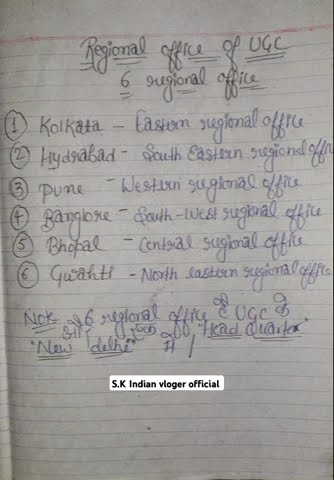 Regional office of UGC
6 regional office
① Kolkata - Eastern regional office
② Hydrabad - South Eastern regional office
③ Pune - Western regional office
④ Banglore - South-West regional office
⑤ Bhopal - Central regional office
⑥ Gwahti - North eastern regional office
Note 6 regional office है UGC के
और एक "Head Quarter"
"New delhi" में |
S.K Indian vloger official